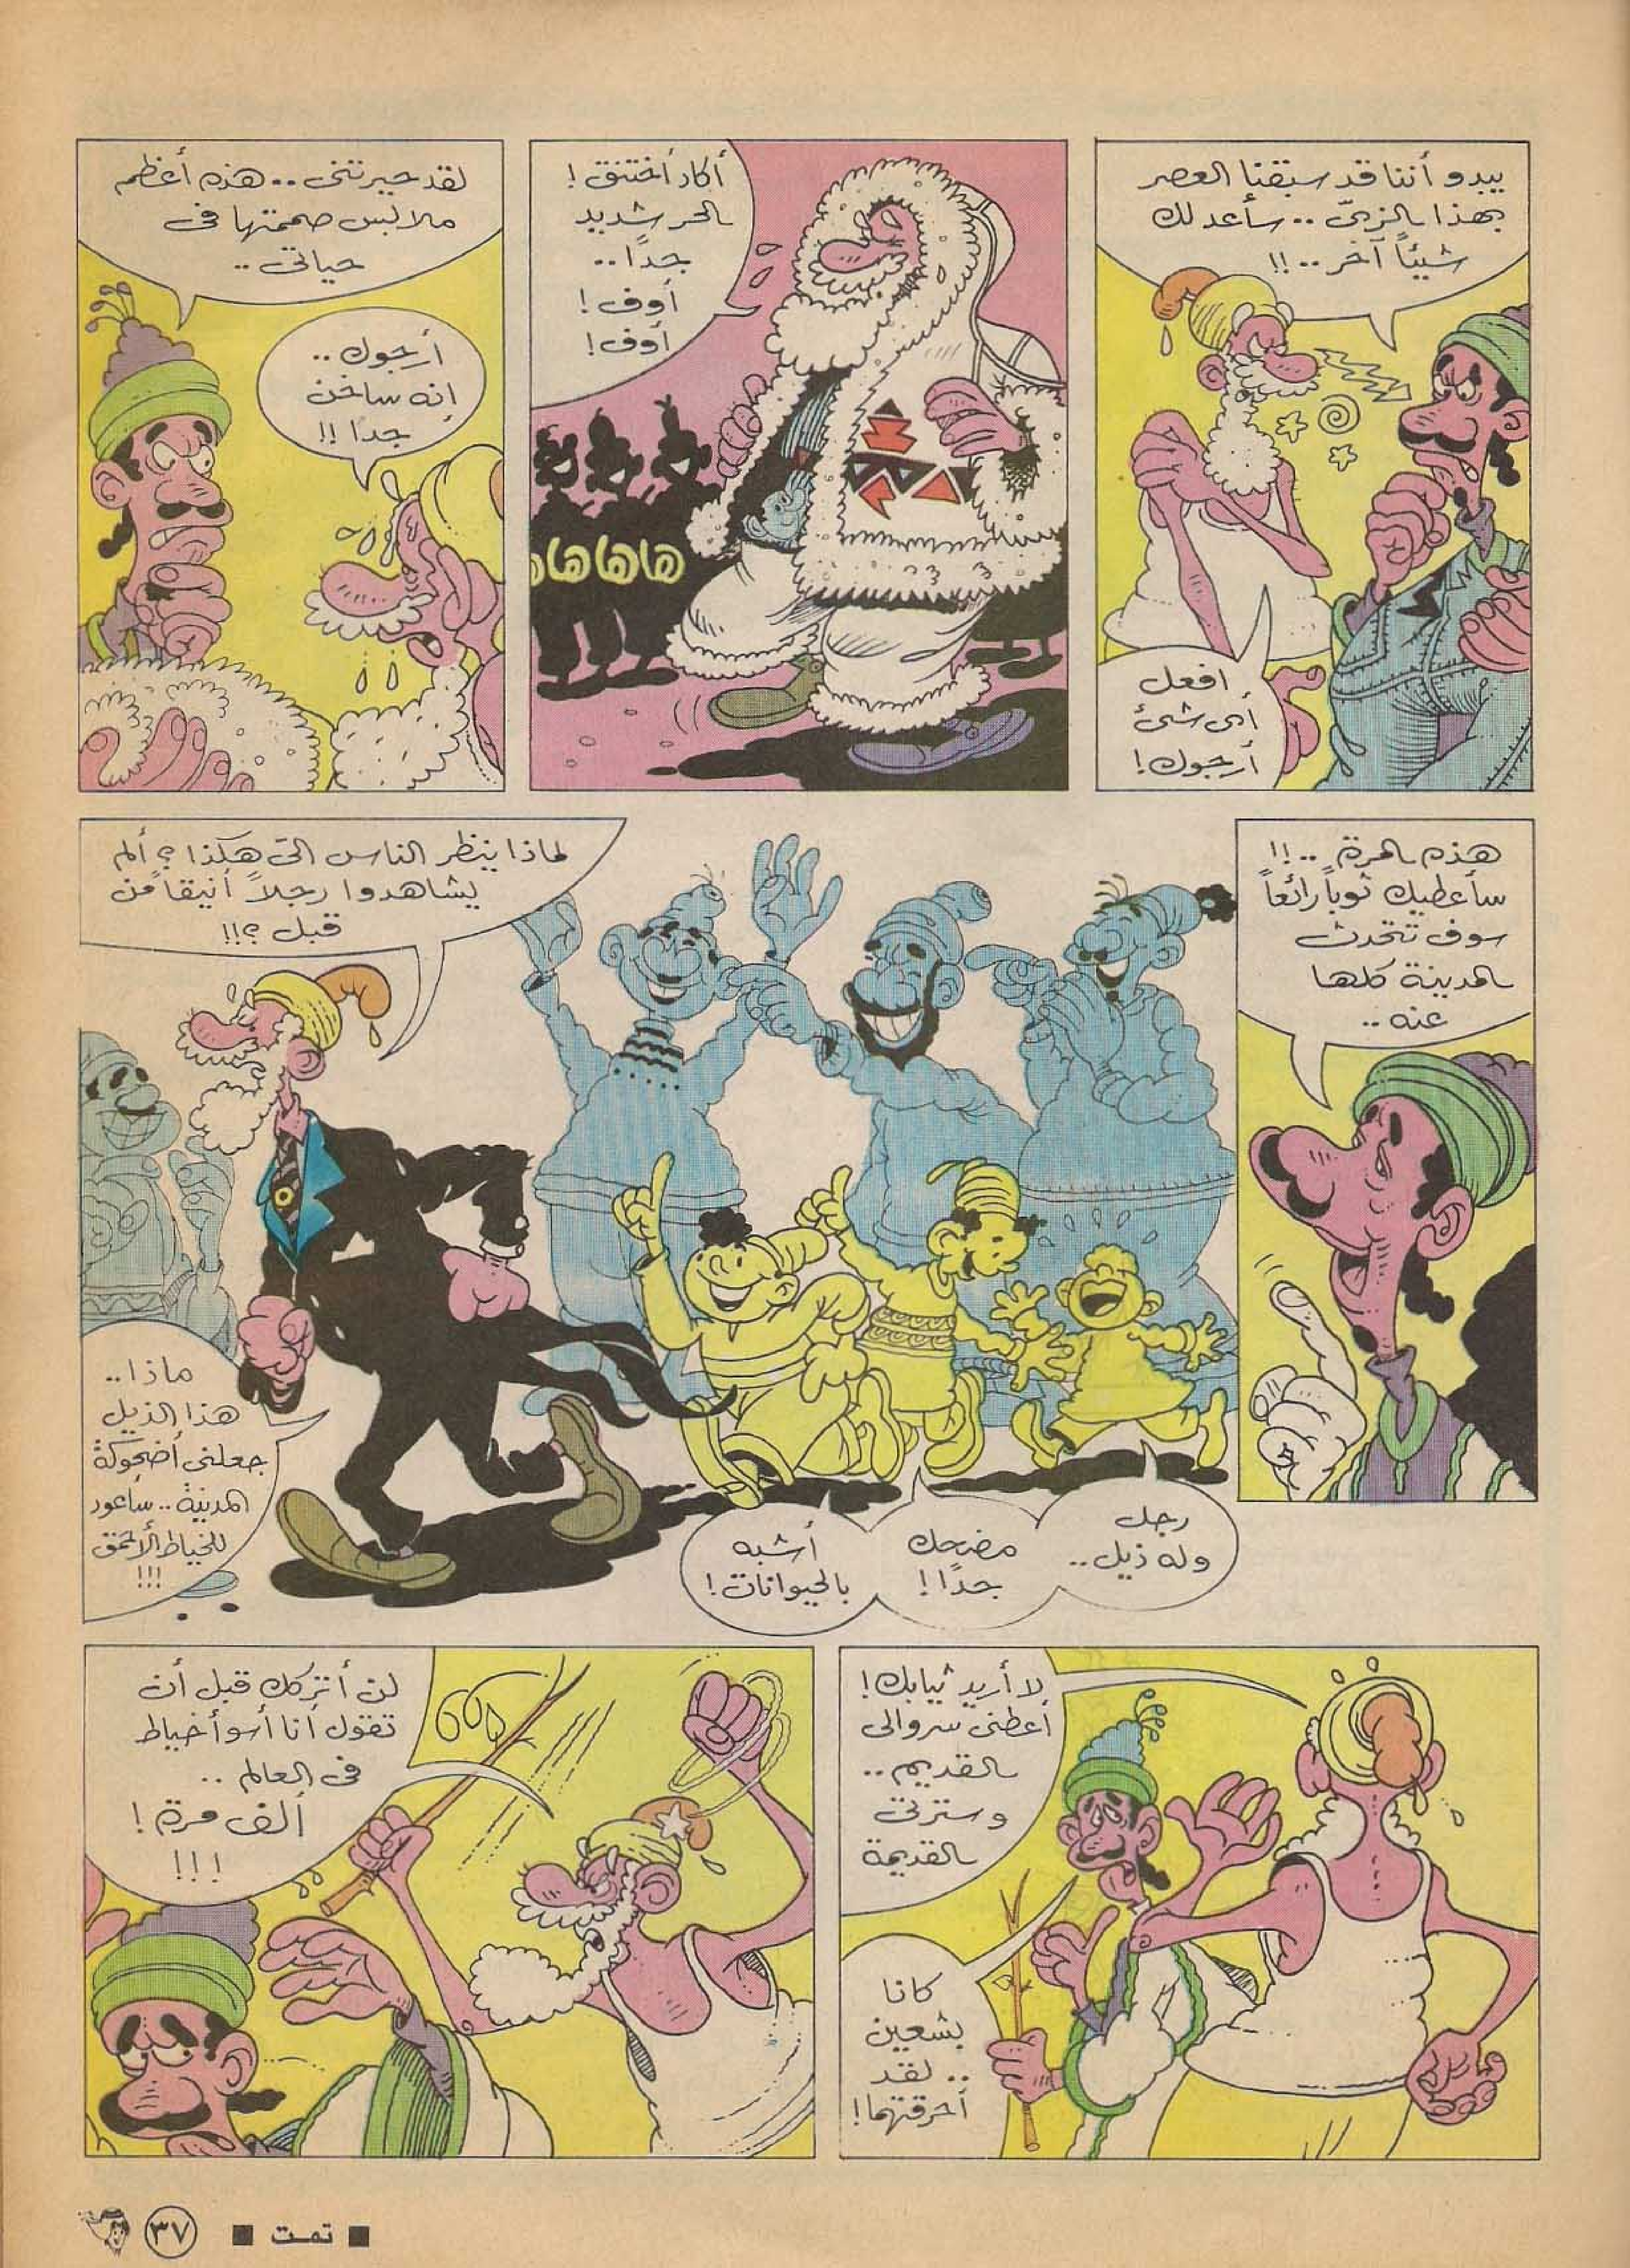 يبدو أننا قد سبقنا العصر
بهذا الزىّ .. سأعد لك
شيئاً آخر .. !!
افعل
أى شئ
أرجوك !
أكاد أختنق !
الحر شديد
جداً ..
أوف !
أوف !
هاهاهاها
لقد حيرتنى .. هذه أعظم
ملابس صممتها فى
حياتى ..
أرجوك ..
إنه ساخن
جداً !!
هذه المرة .. !!
سأعطيك ثوباً رائعاً
سوف تتحدث
المدينة كلها
عنه ..
لماذا ينظر الناس الىّ هكذا ؟ ألم
يشاهدوا رجلاً أنيقاً من
قبل ؟!!
رجل
وله ذيل ..
مضحك
جداً !
أشبه
بالحيوانات !
ماذا ..
هذا الذيل
جعلنى أضحوكة
المدينة .. ساعود
للخياط الأحمق
!!!
لا أريد ثيابك !
أعطنى سروالى
القديم ..
وسترتى
القديمة
كانا
بشعين
.. لقد
أحرقتهما !
لن أتركك قبل أن
تقول أنا أسوأ خياط
فى العالم ..
ألف مرة !
!!!
■ تمت ■
٣٧